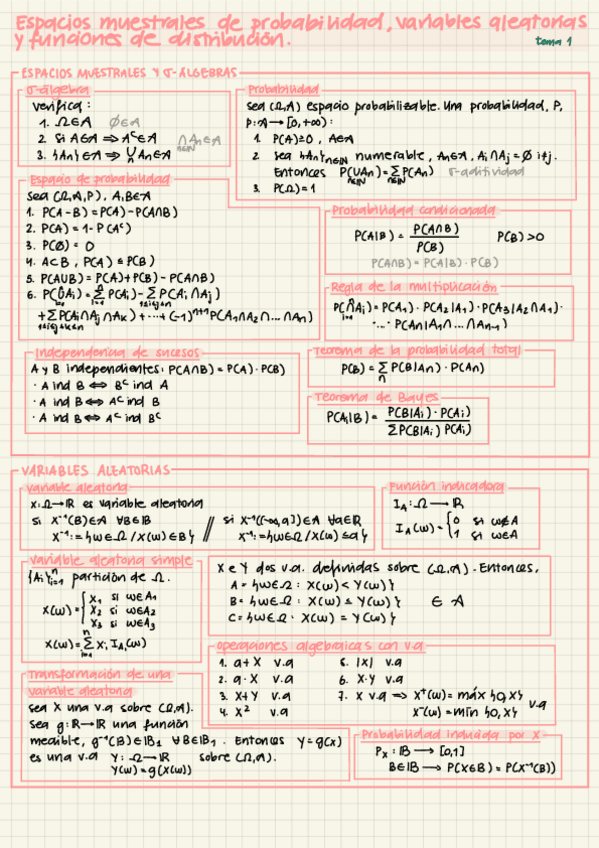 Espacios muestrales de probabilidad, variables aleatorias
y funciones de distribución.
tema 1
ESPACIOS MUESTRALES Y σ-ÁLGEBRAS
σ-álgebra
verifica:
1. Ω∈A   ∅∈A
2. si A∈A ⇒ Aᶜ∈A
3. {An}∈A ⇒ ⋃ₙ An∈A   ⋂ₙ∈ℕ An∈A
Probabilidad
sea (Ω,A) espacio probabilizable. Una probabilidad, P,
p:A → [0,+∞):
1. P(A)≥0, A∈A
2. sea {An}ₙ∈ℕ numerable, An∈A, Ai∩Aj=∅ i≠j.
Entonces P(⋃ₙ∈ℕ An)=∑ₙ∈ℕ P(An)   σ-aditividad
3. P(Ω)=1
Espacio de probabilidad
sea (Ω,A,P), A,B∈A
1. P(A-B)=P(A)-P(A∩B)
2. P(A)=1-P(Aᶜ)
3. P(∅)=0
4. A⊂B, P(A)≤P(B)
5. P(A∪B)=P(A)+P(B)-P(A∩B)
6. P(⋃ⁿᵢ₌₁ Ai)=∑ⁿᵢ₌₁ P(Ai)-∑₁≤i<j≤n P(Ai∩Aj)
+∑₁≤i<j<k≤n P(Ai∩Aj∩Ak)+...+(-1)ⁿ⁺¹P(A1∩A2∩...∩An)
Probabilidad condicionada
P(A|B)= P(A∩B)/P(B)   P(B)>0
P(A∩B)=P(A|B)·P(B)
Regla de la multiplicación
P(⋂ⁿᵢ₌₁ Ai)=P(A1)·P(A2|A1)·P(A3|A2∩A1)·
·...·P(An|A1∩...∩An-1)
Independencia de sucesos
A y B independientes: P(A∩B)=P(A)·P(B)
· A ind B ⇔ Bᶜ ind A
· A ind B ⇔ Aᶜ ind B
· A ind B ⇔ Aᶜ ind Bᶜ
Teorema de la probabilidad total
P(B)=∑ₙ P(B|An)·P(An)
Teorema de Bayes
P(Ai|B)= P(B|Ai)·P(Ai)/∑P(B|Ai)P(Ai)
VARIABLES ALEATORIAS
variable aleatoria
X:Ω→ℝ es variable aleatoria
si X⁻¹(B)∈A ∀B∈𝔹 // si X⁻¹((-∞,a])∈A ∀a∈ℝ
X⁻¹:={w∈Ω/X(w)∈B} X⁻¹:={w∈Ω/X(w)≤a}
Función indicadora
I_A:Ω→ℝ
I_A(w)={0 si w∉A
1 si w∈A
variable aleatoria simple
{Ai}ⁿᵢ₌₁ partición de Ω.
X(w)={X1 si w∈A1
X2 si w∈A2
X3 si w∈A3
X(w)=∑ⁿᵢ₌₁ Xi I_Ai(w)
X e Y dos v.a. definidas sobre (Ω,A). Entonces,
A={w∈Ω: X(w)<Y(w)}
B={w∈Ω: X(w)≤Y(w)}   ∈ A
C={w∈Ω: X(w)=Y(w)}
Operaciones algebraicas con v.a
1. a+X v.a   5. |X| v.a
2. a·X v.a   6. X·Y v.a
3. X+Y v.a   7. X v.a ⇒ X⁺(w)=máx{0,X}
4. X² v.a   X⁻(w)=mín{0,X} v.a
Transformación de una
variable aleatoria
sea X una v.a sobre (Ω,A).
Sea g:ℝ→ℝ una función
medible, g⁻¹(B)∈𝔹1 ∀B∈𝔹1. Entonces Y=g(X)
es una v.a Y:Ω→ℝ sobre (Ω,A).
Y(w)=g(X(w))
Probabilidad inducida por X
P_X:𝔹 → [0,1]
B∈𝔹 → P(X∈B)=P(X⁻¹(B))